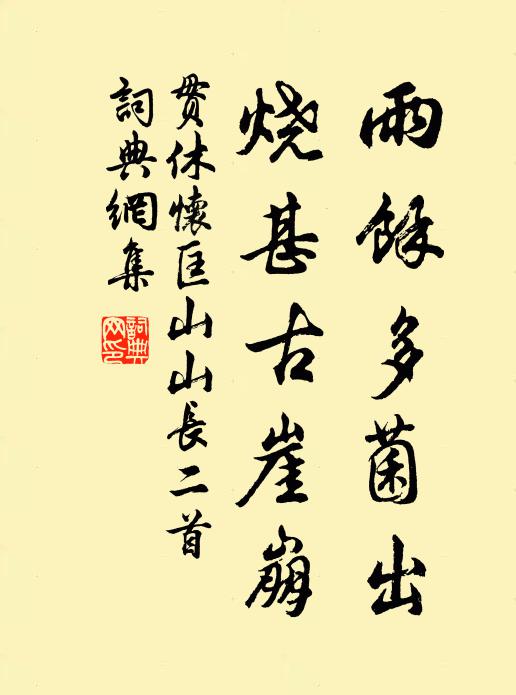 雨餘多菌出
烧甚古崖崩
貫休懷匡山山長二首
詞典網集
詞典网印